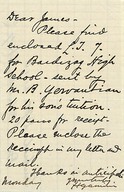 Dear James -
Please find
enclosed £T. 7.
for Bardizag High
School - sent by
Mr. B. Yervantian
for his son's tuition.
20 paras for receipt.
Please enclose the
receipt in my letter and
mail.
Thanks in anticipation
Monday